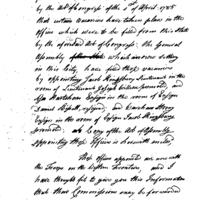 by the Act of Congress of the 1st of April 1785
that certain vacancies have taken place in the
Office which were to be filled from this State
by the aforesaid Act of Congress. The General
Assembly being now sitting
in this City, have filled those vacancies
by appointing Jacob Kingsbury Lieutenant in the
room of Lieutenant promoted, and
also Ensign in the room of Ensign
and Ensign
in the room of Ensign Jacob Kingsbury
promoted. A Copy of the Act of Assembly
appointing those Officers is herewith sent;
These Officers appointed are now with
the Troops on the Western Frontiers, and I
have thought fit to give you this Information
that their Commissions may be forwarded